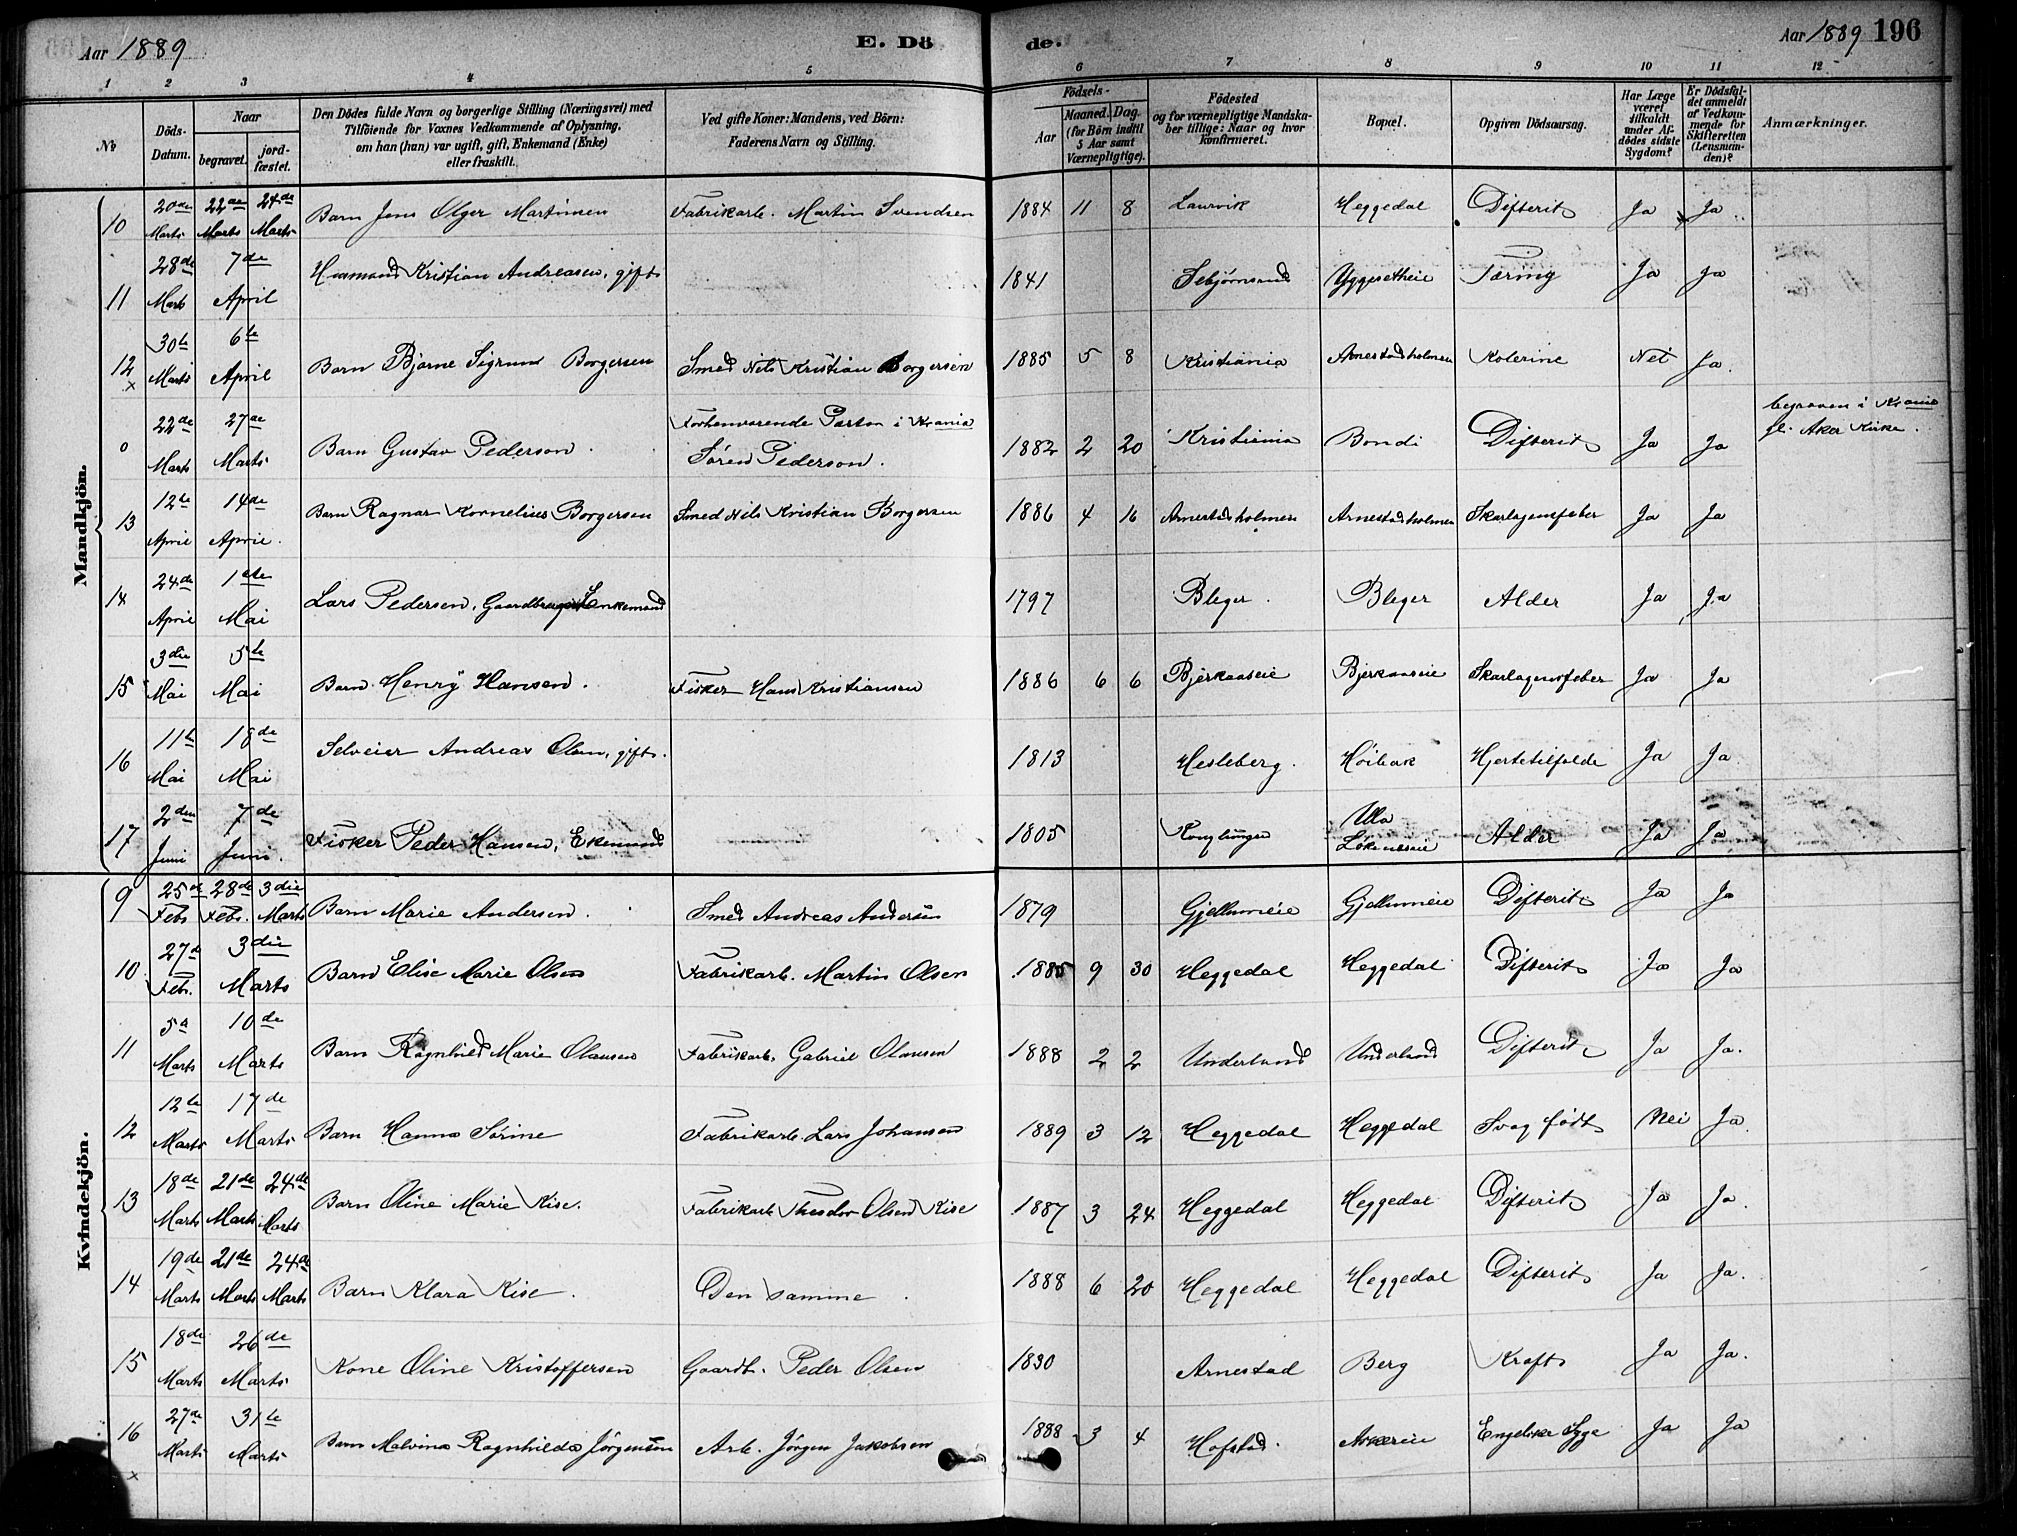 Aar 1889 E. Dö de. Aar 1889 196
1 2 3 4 5 6 7 8 9 10 11 12
No Döds-Datum. Naar begravet. jordfæstet. Den Dödes fulde Navn og borgerlige Stilling (Næringsvei) med Tilföiende for Voxnes Vedkommende af Oplysning, om han (hun) var ugift, gift, Enkemand (Enke) eller fraskilt. Ved gifte Koner: Mandens, ved Börn: Faderens Navn og Stilling. Födsels- Aar Maaned. Dag. (for Börn indtil 5 Aar samt Værnepligtige). Födested og for værnepligtige Mandskaber tillige: Naar og hvor konfirmeret. Bopæl. Opgiven Dödsaarsag. Har Læge været tilkaldt under Afdödes sidste Sygdom? Er Dödsfaldet anmeldt af Vedkommende for Skifteretten (Lensmanden)? Anmærkninger.
Mandkjön.
10 20de Marts 22de Marts 24de Marts Barn Jens Olger Martinsen Fabrikarb. Martin Svendsen 1884 11 8 Laurvik Heggedal Difterit Ja Ja
11 28de Marts 7de April Husmand Kristian Andreasen, gift 1841 Yggesetheie Tæring Ja Ja
12 x 30te Marts 6te April Barn Bjarne Sigrund Borgersen Smed Nils Kristian Borgersen 1885 5 8 Kristiania Arnestadholmen Kolerine Nei Ja.
0 22de Marts 27de Marts Barn Gustav Pederson. Forhenværende Pastor i Krania Sören Pederson. 1882 2 20 Kristiania Bondi Difterit Ja Ja begraven i Krania gl. Aker Kirke.
13 12te April 14de April. Barn Ragnar Kornelius Borgersen Smed Nils Kristian Borgersen 1886 4 16 Arnestadholmen Arnestadholmen Skarlagensfeber Ja Ja
14 24de April 1ste Mai Lars Pedersen, Gaardbruger Enkemand 1797 Bleger. Bleger Alder Ja Ja
15 3die Mai 5te Mai Barn Henry Hansen. Fisker Hans Kristiansen 1886 6 6 Bjerkaaseie Bjerkaaseie Skarlagensfeber Ja Ja
16 11te Mai 18de Mai Selveier Andreas Olsen, gift. 1813 Hesleberg. Höibak Hjertetilfælde Ja Ja
17 2den Juni 7de Juni. Fisker Peder Hansen, Ekemand 1805 Konglungen Ulla Lökeneseie Alder Ja Ja
Kvindekjön.
9 25de Febr. 28de Febr. 3die Marts Barn Marie Andersen. Smed Andreas Andersen 1879 Gjellumeie Gjellumeie Difterit Ja Ja
10 27de Febr. 3die Marts Barn Elise Marie Olsen Fabrikarb. Martin Olsen 1885 9 30 Heggedal Heggedal Difterit Ja Ja
11 5te Marts 10de Marts Barn Ragnhild Marie Olausen Fabrikarb. Gabriel Olausen 1888 2 2 Underlund Underlund Difterit Ja Ja.
12 12te Marts 17de Marts Barn Hanna Sörine Fabrikarb. Lars Johansen 1889 3 12 Heggedal Heggedal Svag födt Nei Ja
13 18de Marts 21de Marts 24de Marts Barn Oline Marie Kise. Fabrikarb Theodor Olsen Kise 1887 3 24 Heggedal Heggedal Difterit Ja Ja.
14 19de Marts 21de Marts 24de Marts Barn Klara Kise. Den samme. 1888 6 20 Heggedal Heggedal Difterit Ja Ja.
15 18de Marts 26de Marts Kone Oline Kristoffersen Gaardb. Peder Olsen 1830 Arnestad Berg Kræft Ja Ja.
16 x 27de Marts 31te Marts Barn Malvina Ragnhilda Jörgensen Arb. Jörgen Jakobsen 1888 3 4 Hofstad. Askereie Engelske Syge Ja Ja